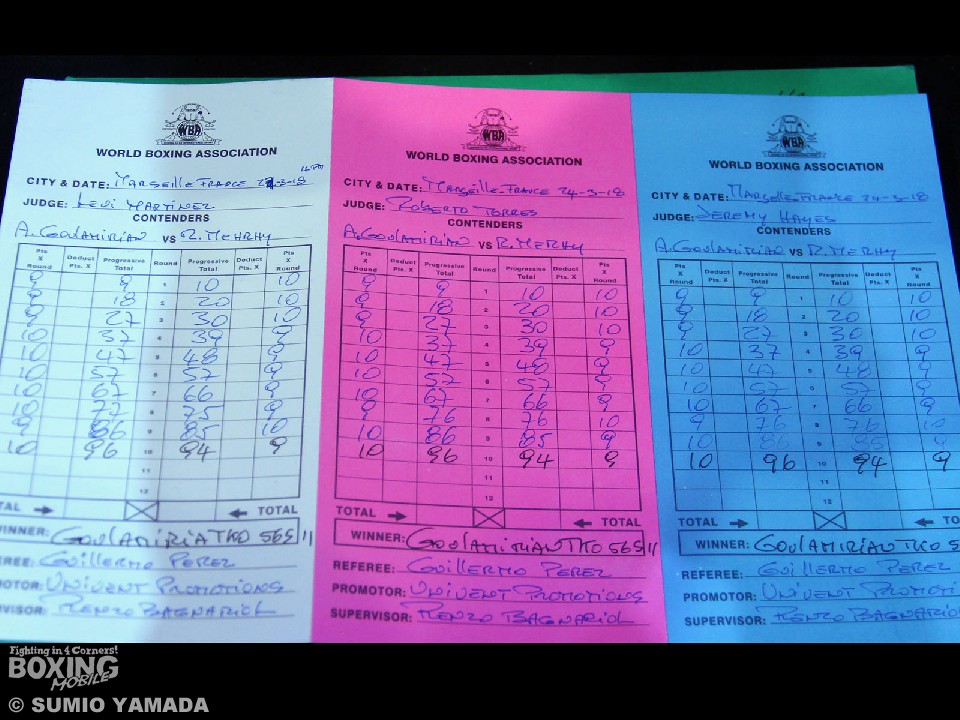 WBA
WORLD BOXING ASSOCIATION
CITY & DATE: MARSEILLE FRANCE 24-3-18
JUDGE: LEVI MARTINEZ
CONTENDERS
A. GOULAMIRIAN VS R. MERHY
Pts X Round Deduct Pts. X Progressive Total Round Progressive Total Deduct Pts. X Pts X Round
9 9 1 10 10
9 18 2 20 10
9 27 3 30 10
10 37 4 39 9
10 47 5 48 9
10 57 6 57 9
10 67 7 66 9
10 77 8 75 9
9 86 9 85 10
10 96 10 94 9
11
12
TAL TOTAL
WINNER: GOULAMIRIAN TKO 56S 11
REE: GUILLERMO PEREZ
MOTOR: UNIVENT PROMOTIONS
VISOR: RENZO BAGNARIOL
WBA
WORLD BOXING ASSOCIATION
CITY & DATE: MARSEILLE FRANCE 24-3-18
JUDGE: ROBERTO TORRES
CONTENDERS
A. GOULAMIRIAN VS R. MERHY
Pts X Round Deduct Pts. X Progressive Total Round Progressive Total Deduct Pts. X Pts X Round
9 9 1 10 10
9 18 2 20 10
9 27 3 30 10
10 37 4 39 9
10 47 5 48 9
10 57 6 57 9
10 67 7 66 9
9 76 8 76 10
10 86 9 85 9
10 96 10 94 9
11
12
TOTAL TOTAL
WINNER: GOULAMIRIAN TKO 56S 11
REFEREE: GUILLERMO PEREZ
PROMOTOR: UNIVENT PROMOTIONS
SUPERVISOR: RENZO BAGNARIOL
WBA
WORLD BOXING ASSOCIATION
CITY & DATE: MARSEILLE FRANCE 24-3-18
JUDGE: JEREMY HAYES
CONTENDERS
A. GOULAMIRIAN VS R. MERHY
Pts X Round Deduct Pts. X Progressive Total Round Progressive Total Deduct Pts. X Pts X Round
9 9 1 10 10
9 18 2 20 10
9 27 3 30 10
10 37 4 39 9
10 47 5 48 9
10 57 6 57 9
10 67 7 66 9
9 76 8 76 10
10 86 9 85 9
10 96 10 94 9
11
12
TOTAL TO
WINNER: GOULAMIRIAN TKO 5
REFEREE: GUILLERMO PEREZ
PROMOTOR: UNIVENT PROMOTI
SUPERVISOR: RENZO BAGNARIOL
Fighting in 4 Corners!
BOXING
MOBILE
© SUMIO YAMADA